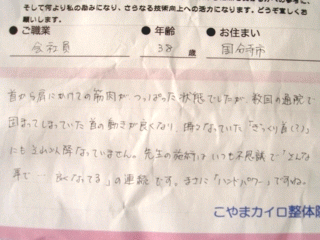 そして何より私の励みになり、さらなる技術向上への活力になります。どうぞ宜しくお
願いします。
● ご職業 ● 年齢 ● お住まい
会社員 38 歳 国分寺市
首から肩にかけての筋肉が つっぱった状態でしたが、数回の通院で
固まってしまっていた首の動きが良くなり、時々なっていた「ぎっくり首(?)」
にもそれ以降なっていません。先生の施術はいつも不思議で「どんな
事で… 良くなってる」の連続です。まさに「ハンドパワー」ですね。
こやまカイロ整体院